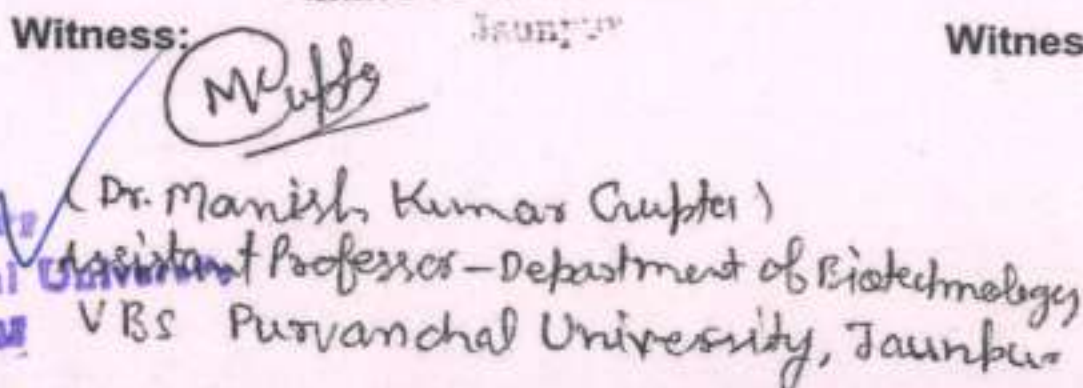 Witness: Jaunpur Witnes
MGupta
(Dr. Manish Kumar Gupta)
Assistant Professor-Department of Biotechnology
VBS Purvanchal University, Jaunpur